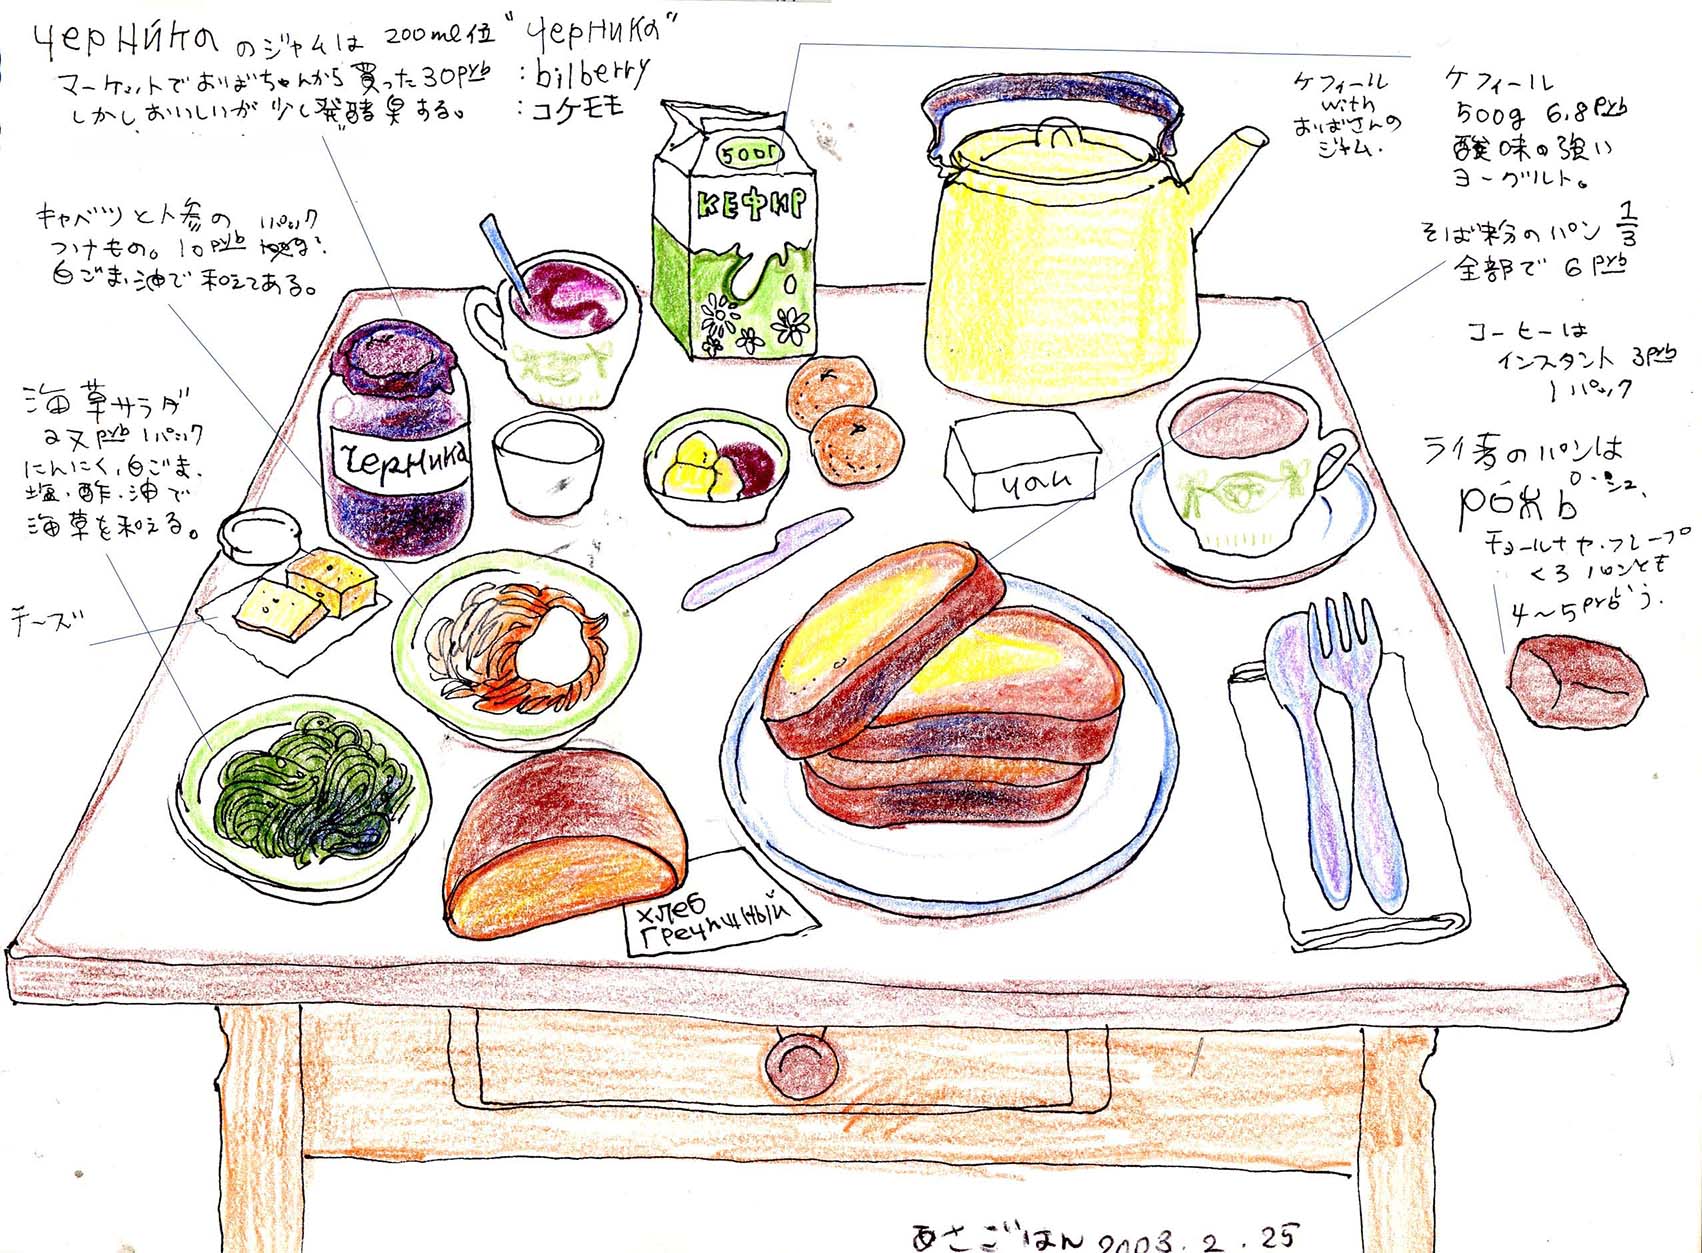 черника のジャムは 200ml位
マーケットでおばちゃんから買った30руб
しかしおいしいが少し発酵臭する。
"черника"
:bilberry
:コケモモ
キャベツと人参の
つけもの。10руб パック
白ごま油で和えてある。
海草サラダ
руб 1パック
にんにく、白ごま、
塩・酢・油で
海草を和える。
チーズ
500г
КЕФИР
черника
чай
хлеб
Гречишный
ケフィール
with
おばさんの
ジャム.
ケフィール
500g 6,8руб
酸味の強い
ヨーグルト。
そば粉のパン 1/3
全部で 6руб
コーヒーは
インスタント 3руб
1パック
ライ麦のパンは
チョールナヤ・フレープ
くろパンとも
いう.
4〜5руб
あさごはん 2003.2.25